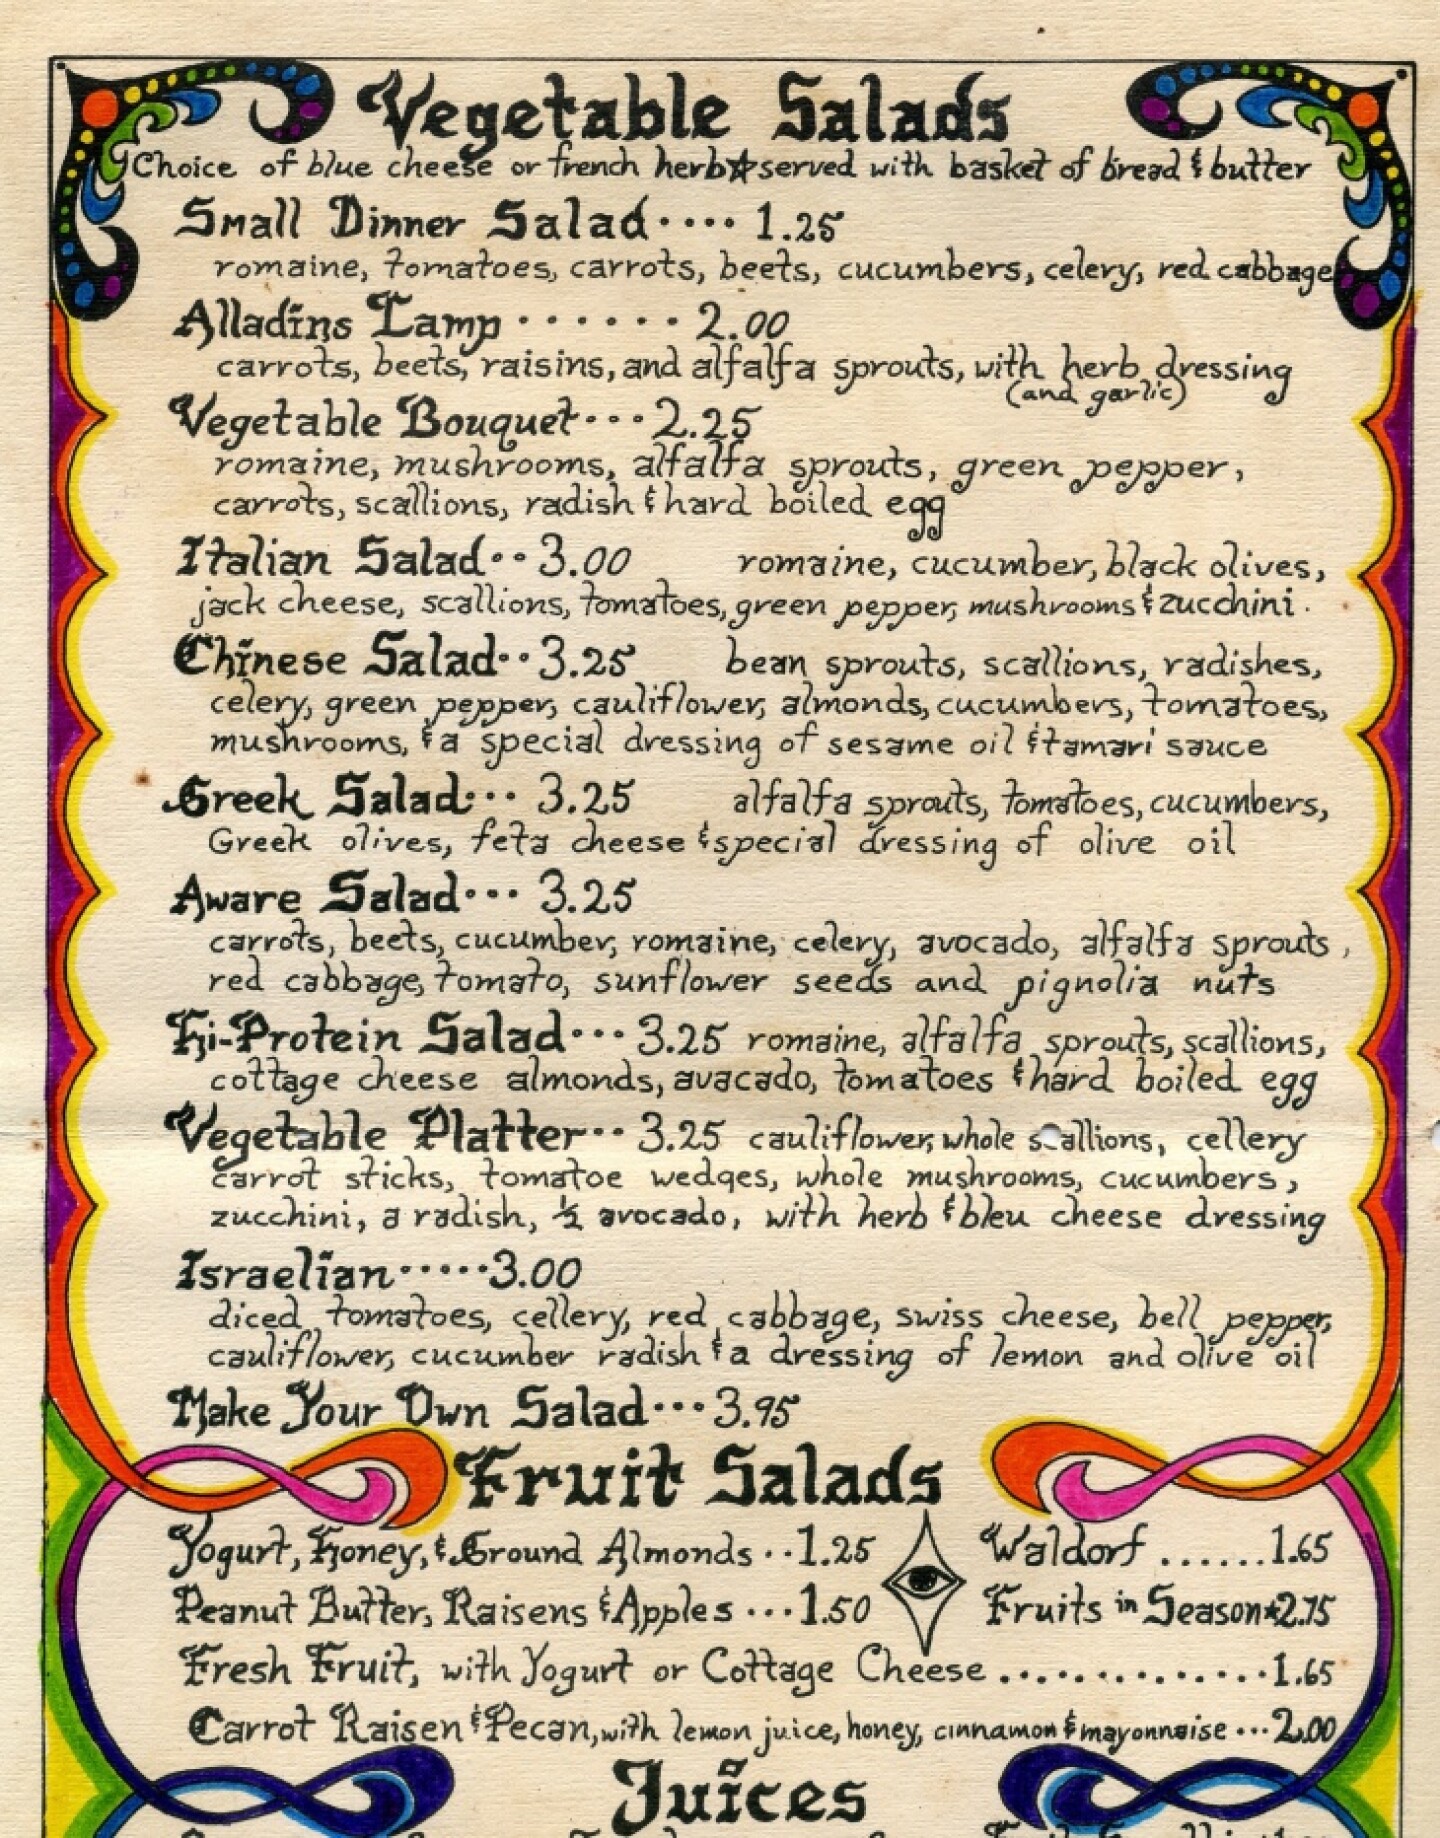 Vegetable Salads
Choice of blue cheese or french herb☆served with basket of bread & butter
Small Dinner Salad ···· 1.25
romaine, tomatoes, carrots, beets, cucumbers, celery, red cabbage
Alladins Lamp ······· 2.00
carrots, beets, raisins, and alfalfa sprouts, with herb dressing
(and garlic)
Vegetable Bouquet ··· 2.25
romaine, mushrooms, alfalfa sprouts, green pepper,
carrots, scallions, radish & hard boiled egg
Italian Salad ·· 3.00 romaine, cucumber, black olives,
jack cheese, scallions, tomatoes, green pepper, mushrooms & zucchini.
Chinese Salad ·· 3.25 bean sprouts, scallions, radishes,
celery, green pepper, cauliflower, almonds, cucumbers, tomatoes,
mushrooms, & a special dressing of sesame oil & tamari sauce
Greek Salad ··· 3.25 alfalfa sprouts, tomatoes, cucumbers,
Greek olives, feta cheese & special dressing of olive oil
Aware Salad ··· 3.25
carrots, beets, cucumber, romaine, celery, avocado, alfalfa sprouts,
red cabbage, tomato, sunflower seeds and pignolia nuts
Hi-Protein Salad ··· 3.25 romaine, alfalfa sprouts, scallions,
cottage cheese almonds, avacado, tomatoes & hard boiled egg
Vegetable Platter ·· 3.25 cauliflower, whole scallions, cellery
carrot sticks, tomatoe wedges, whole mushrooms, cucumbers,
zucchini, a radish, ½ avocado, with herb & bleu cheese dressing
Israelian ····· 3.00
diced tomatoes, cellery, red cabbage, swiss cheese, bell pepper,
cauliflower, cucumber radish & a dressing of lemon and olive oil
Make Your Own Salad ··· 3.95
Fruit Salads
Yogurt, Honey, & Ground Almonds ·· 1.25
Waldorf ...... 1.65
Peanut Butter, Raisens & Apples ··· 1.50
Fruits in Season ★ 2.75
Fresh Fruit, with Yogurt or Cottage Cheese .............. 1.65
Carrot Raisen & Pecan, with lemon juice, honey, cinnamon & mayonnaise ··· 2.00
Juices